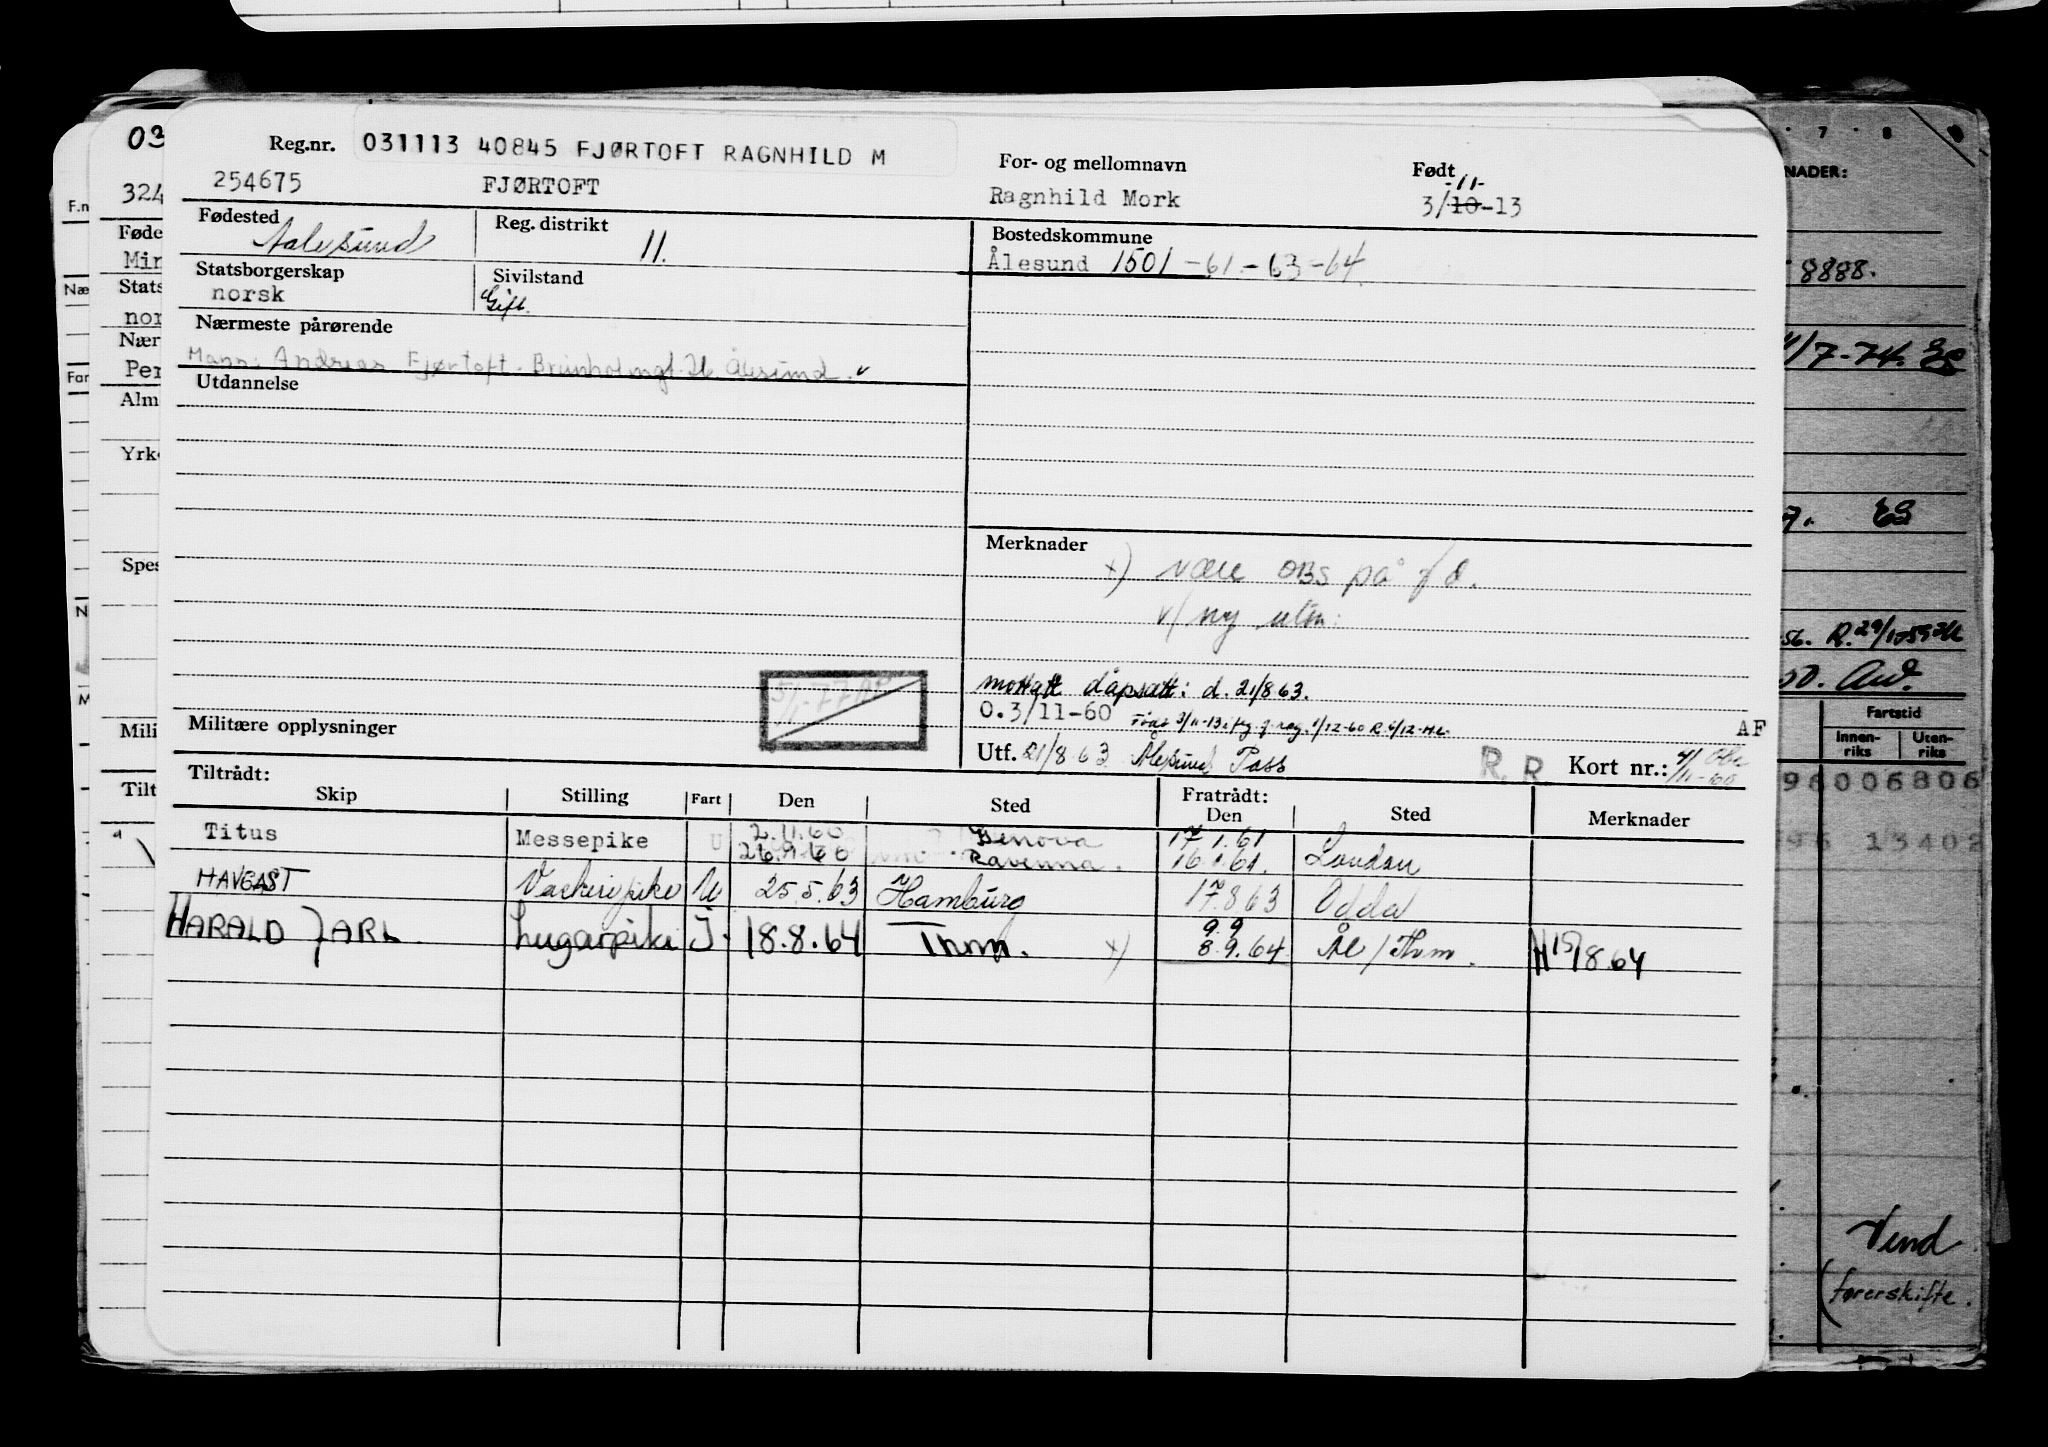 Reg.nr. 031113 40845 FJØRTOFT RAGNHILD M
254675 FJØRTOFT
For- og mellomnavn
Ragnhild Mork
Født
-11-
3/10-13
Fødested
Aalesund
Reg. distrikt
11.
Bostedskommune
Ålesund 1501 -61.-63-64.
Statsborgerskap
norsk
Sivilstand
Gift.
Nærmeste pårørende
Mann: Andreas Fjørtoft. Ålesund.
Utdannelse
Merknader
x) være OBS på f d.
v/ ny utm:
mottatt dåpsatt: d. 21/8 63.
O.3/11-60
AF
Militære opplysninger
Utf. 21/8 63 Ålesund Pass
R R Kort nr.:
Tiltrådt: Fratrådt:
Skip Stilling Fart Den Sted Den Sted Merknader
Titus Messepike U 2.11.60 Genova 17.1.61
26.9.60 Ravenna. 16.1.61. London
HAVGAST Vaskeripike U 25.5.63 Hamburg 17.8 63 Odda
HARALD JARL. Lugarpike J. 18.8.64 Trnm. x) 9.9
8.9.64 Ål / Thm.
03
324
F.n
Føde
Min
Næ
Stats
nor
Nær
Far
Per
Alm
Yrke
Spes
N
M
Mili
Tilt
7 8
NADER:
8888.
/7-74.
7.
Fartstid
Innen-
riks
Uten-
riks
96006806
96 13402
Vend
(førerskifte.